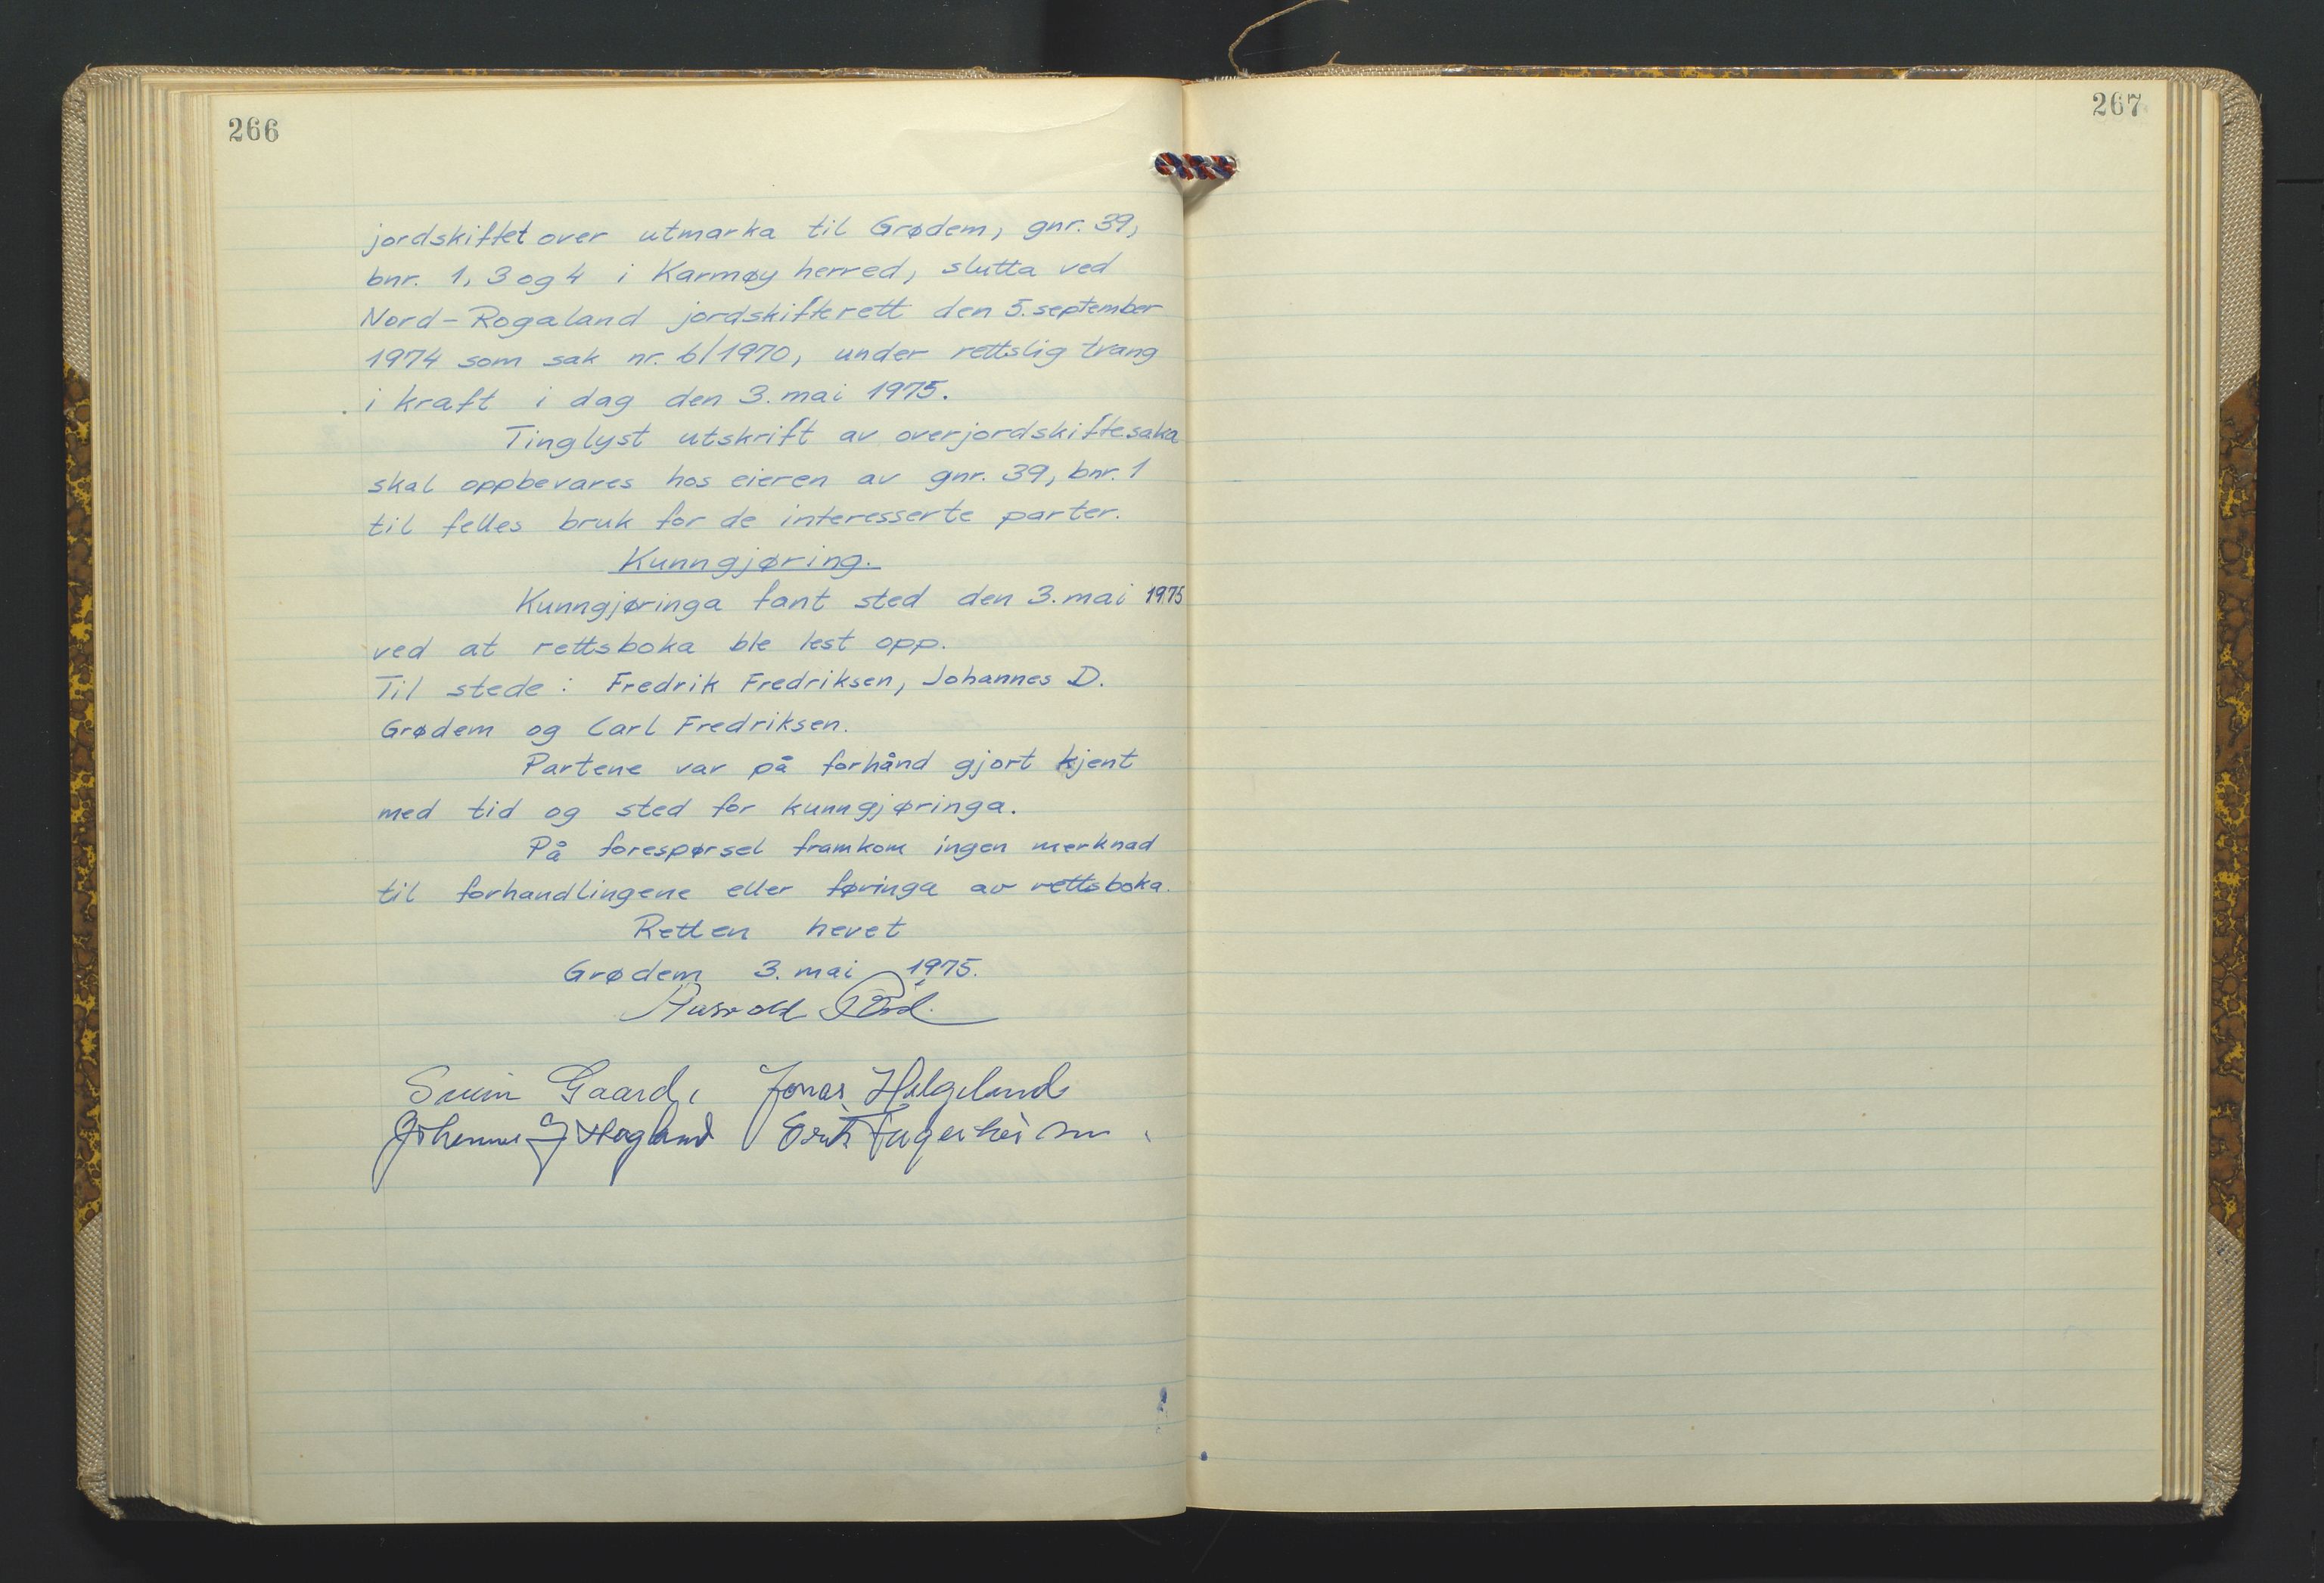 266
jordskiftet over utmarka til Grødem, gnr. 39,
bnr. 1, 3 og 4 i Karmøy herred, slutta ved
Nord-Rogaland jordskifterett den 5. september
1974 som sak nr. 6/1970, under rettslig tvang
i kraft i dag den 3. mai 1975.
Tinglyst utskrift av overjordskiftesaka
skal oppbevares hos eieren av gnr. 39, bnr. 1
til felles bruk for de interesserte parter.
Kunngjøring.
Kunngjøringa fant sted den 3. mai 1975
ved at rettsboka ble lest opp.
Til stede: Fredrik Fredriksen, Johannes D.
Grødem og Carl Fredriksen.
Partene var på forhånd gjort kjent
med tid og sted for kunngjøringa.
På forespørsel framkom ingen merknad
til forhandlingene eller føringa av rettsboka.
Retten hevet
Grødem 3. mai 1975.
Svein Gaard, Jonas Helgeland
Johannes Hogland
267